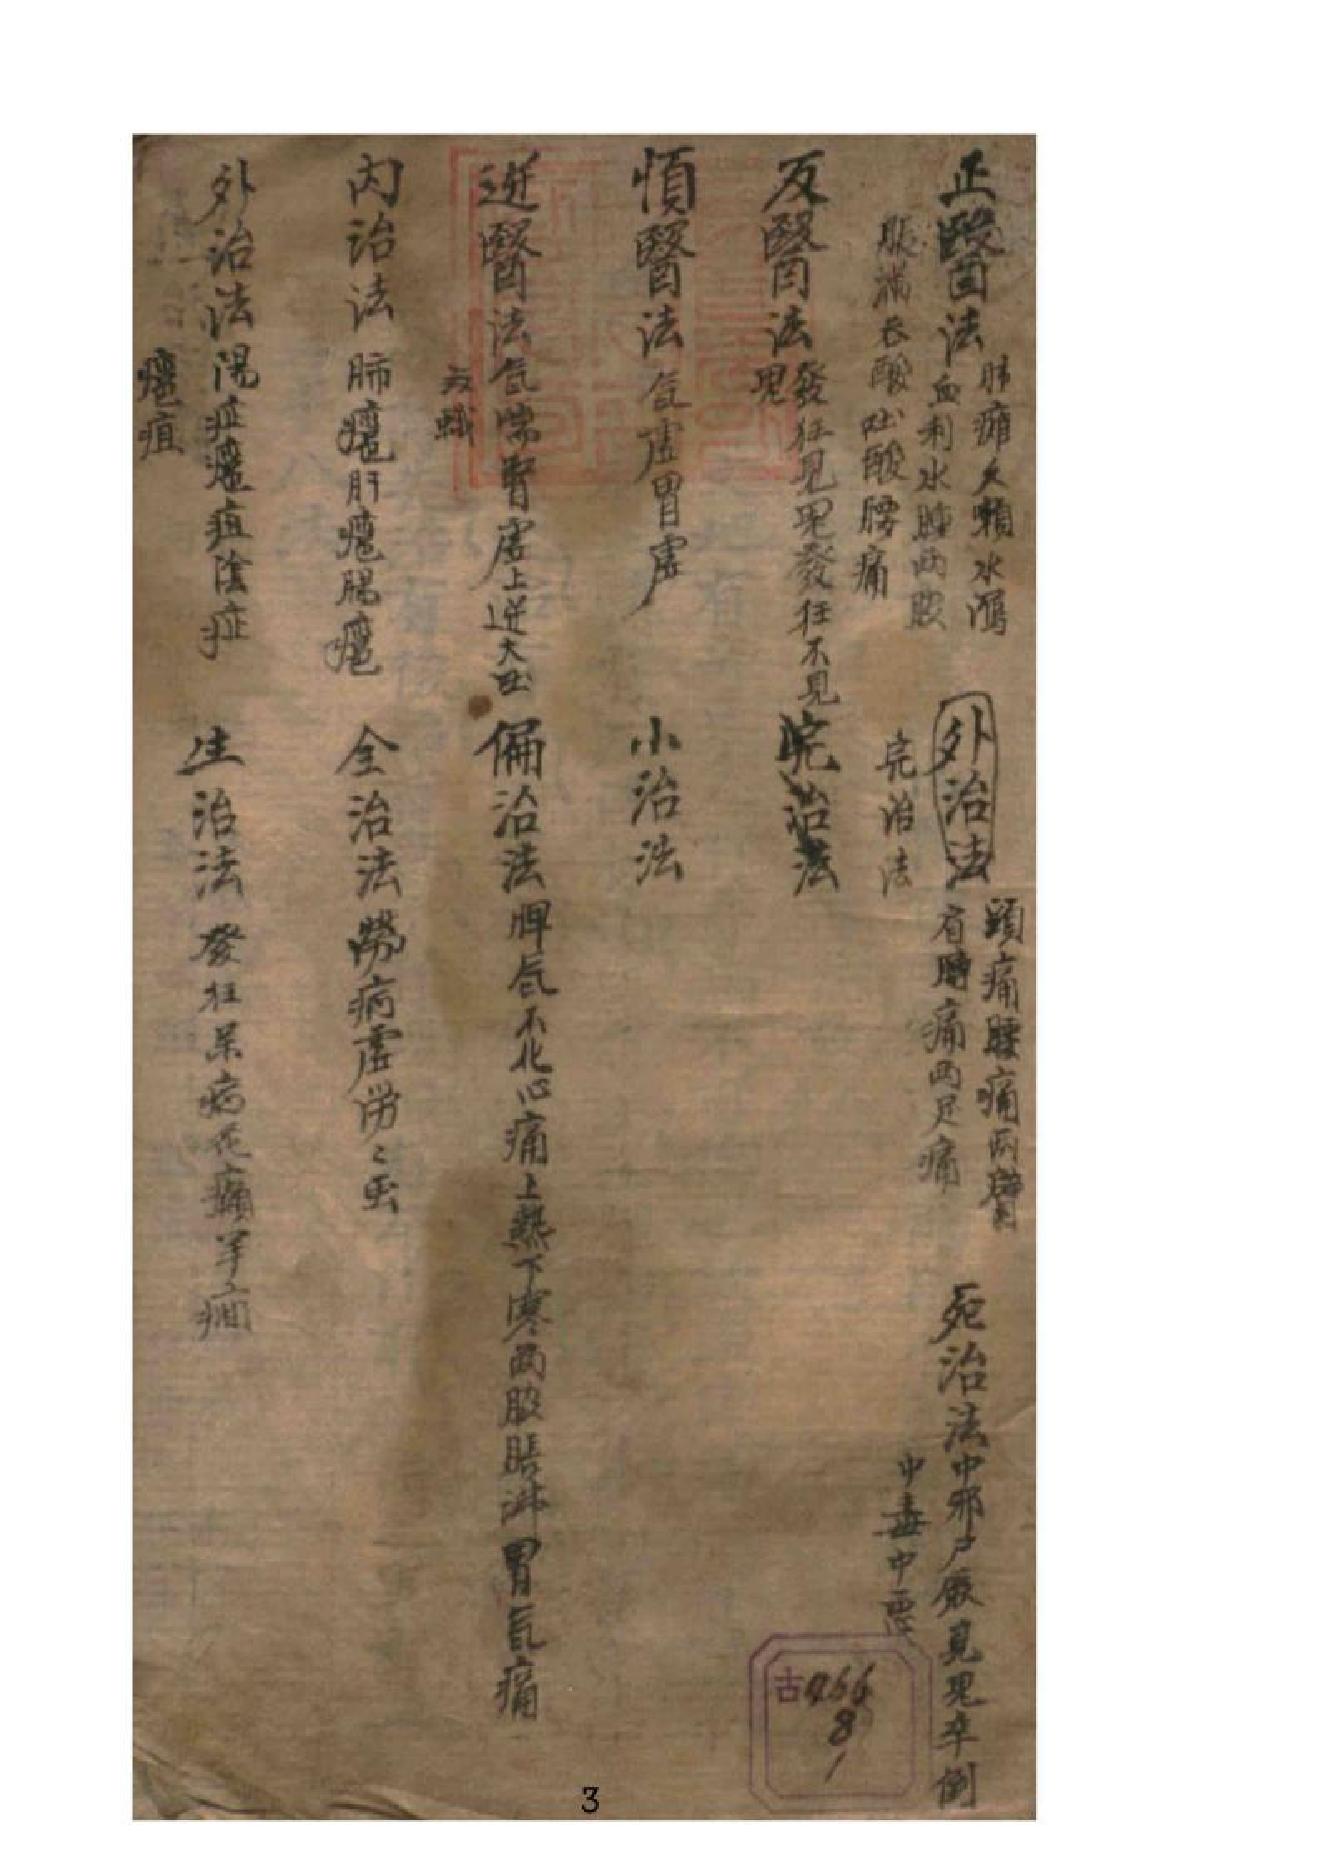 正醫法
肺癰久嗽水瀉
血利水腫兩脇
脹滿吞酸吐酸腰痛
外治法
頭痛腰痛兩臂
有時痛兩足痛
完治法
死治法中邪尸厥見鬼卒倒
中毒中惡
反醫法
發狂見鬼發狂不見
鬼
完治法
順醫法氣虛胃虛
小治法
逆醫法氣喘腎虛上逆大吐
双蛾
偏治法脾氣不化心痛上熱下寒兩脇脹滿胃氣痛
內治法肺癰肝癰腸癰
全治法勞病虛勞〻虫
外治法陽症癰疽陰症
癰疽
生治法發狂呆病花癲羊癇
古966
8
1
3